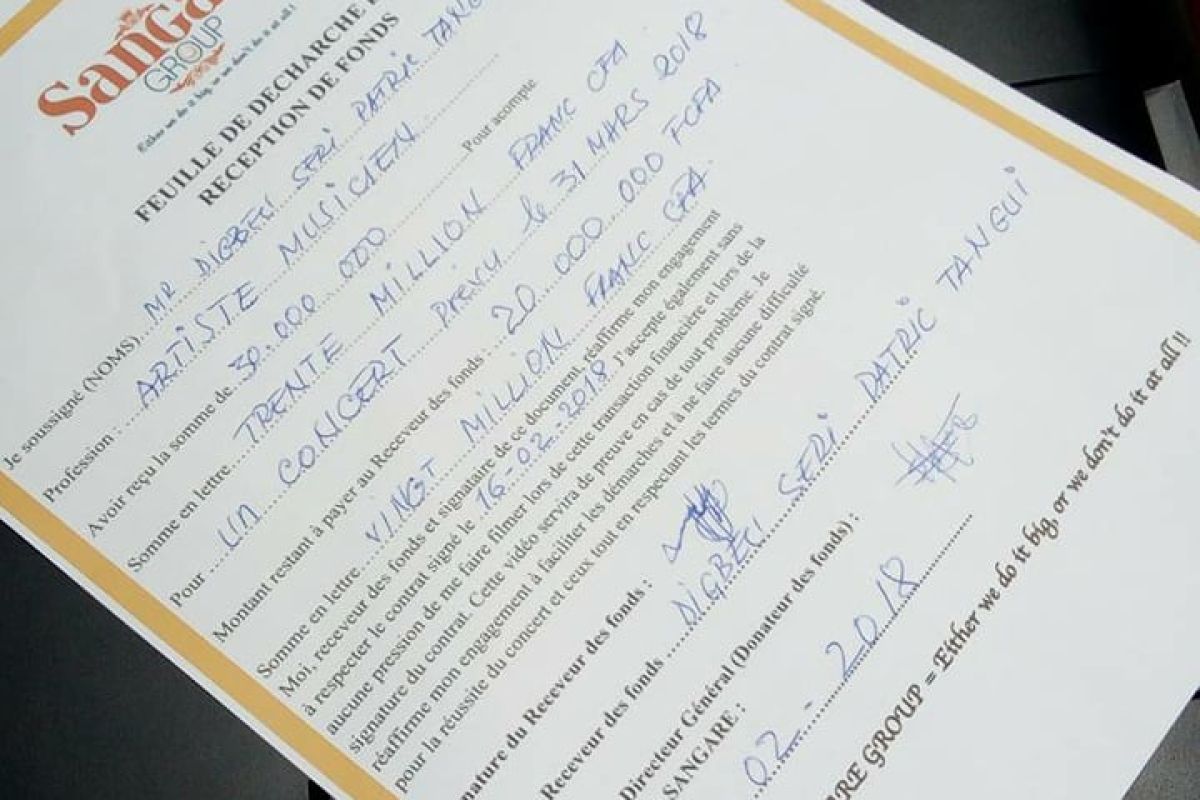 Sanga
GROUP
Either we do it big, or we don't do it at all !
FEUILLE DE DECHARCHE
RECEPTION DE FONDS
Je soussigné (NOMS) MR DIGBEU SERI PATRIC TANG
Profession : ARTISTE MUSICIEN
Avoir reçu la somme de 30.000 000 Pour acompte
Somme en lettre TRENTE MILLION FRANC CFA
Pour UN CONCERT PREVU le 31 MARS 2018
Montant restant à payer au Receveur des fonds : 20 000 000 FCFA
Somme en lettre VINGT MILLION FRANC CFA
Moi, receveur des fonds et signataire de ce document, réaffirme mon engagement
à respecter le contrat signé le 16-02-2018 J'accepte également sans
aucune pression de me faire filmer lors de cette transaction financière et lors de la
signature du contrat. Cette vidéo servira de preuve en cas de tout problème. Je
réaffirme mon engagement à faciliter les démarches et à ne faire aucune difficulté
pour la réussite du concert et ceux tout en respectant les termes du contrat signé.
nature du Receveur des fonds :
Receveur des fonds DIGBEU SERI PATRIC TANGUI
Directeur Général (Donateur des fonds) :
SANGARE :
02-2018
RE GROUP = Either we do it big, or we don't do it at all !!